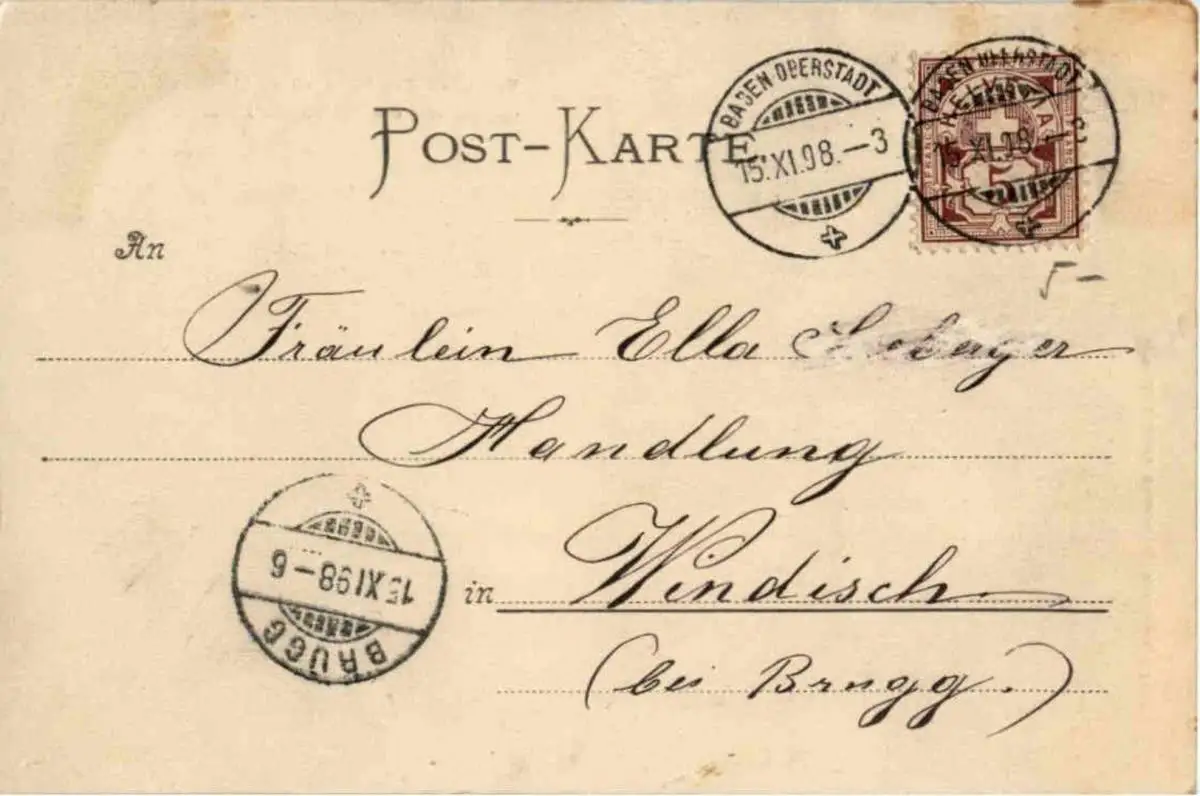 POST-KARTE
BADEN OBERSTADT
15.XI.98.–3
BADEN OBERSTADT
HELVETIA
15.XI.98.–3
5
5–
An
Fräulein Ella
Handlung
in Windisch
(bei Brugg.)
BRUGG
15.XI.98–6